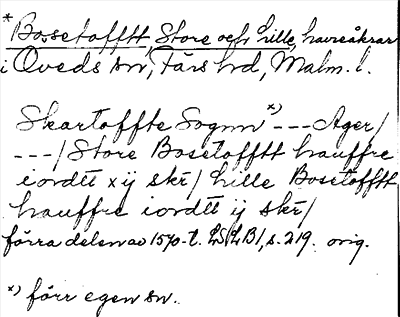 * Bosetofftt, Store och Lille, havreåkrar
i Öveds sn, Färs hd, Malm. l.
Skartoffte Sognn x) --- Ager/
---/ Store Bosetofftt hauffre
iordtt xij skr/ Lille Bosetofftt
hauffre iordtt ij skr/
förra delen av 1570-t. LSLB1, s. 219. orig.
x) förr egen sn.